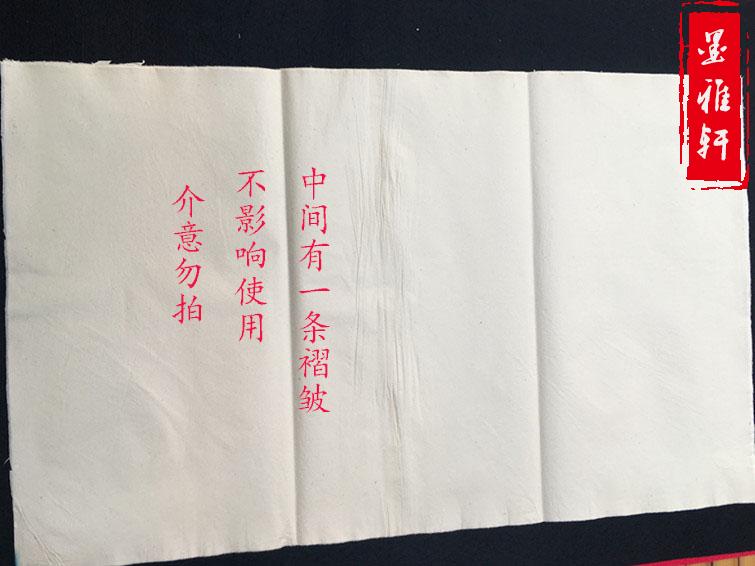 墨雅轩
中间有一条褶皱
不影响使用
介意勿拍